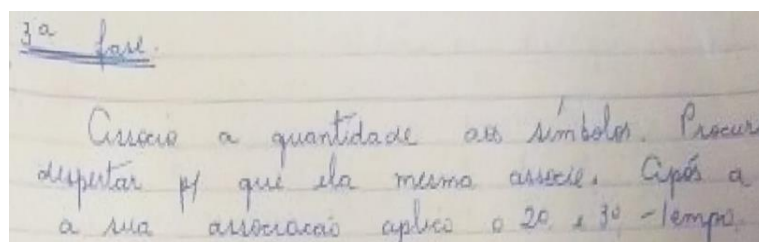 3ª fase.
Associo a quantidade aos símbolos. Procur
despertar p/ que ela mesma associe. Após a
a sua associacão aplico o 2º e 3º - tempo.